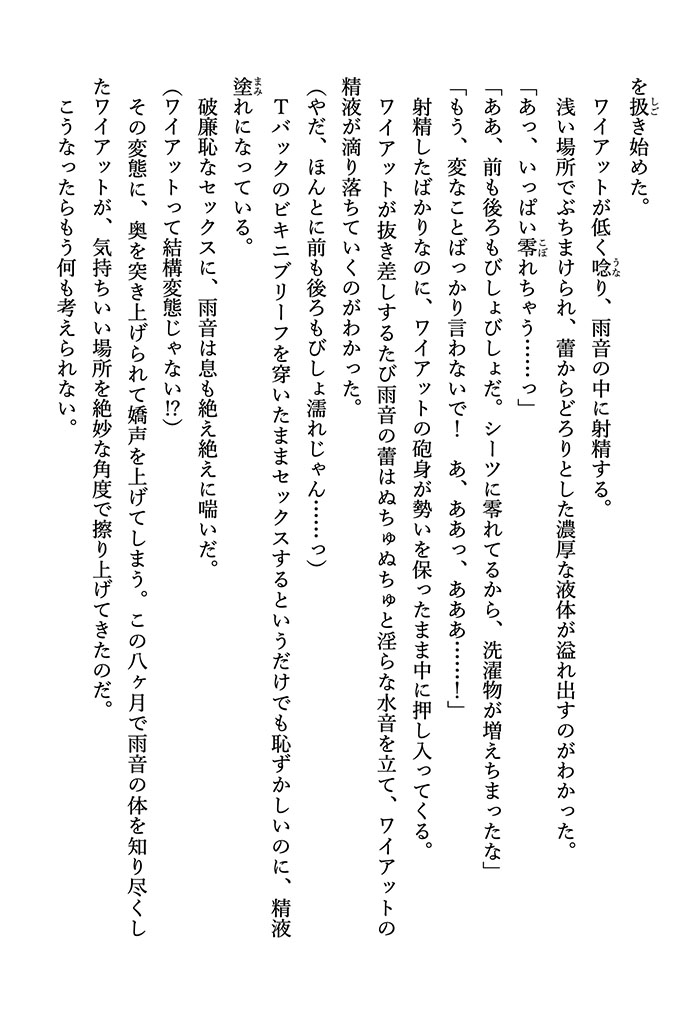 を扱き始めた。
ワイアットが低く唸り、雨音の中に射精する。
浅い場所でぶちまけられ、蕾からどろりとした濃厚な液体が溢れ出すのがわかった。
「あっ、いっぱい零れちゃう……っ」
「ああ、前も後ろもびしょびしょだ。シーツに零れてるから、洗濯物が増えちまったな」
「もう、変なことばっかり言わないで！　あ、ああっ、あああ……！」
射精したばかりなのに、ワイアットの砲身が勢いを保ったまま中に押し入ってくる。
ワイアットが抜き差しするたび雨音の蕾はぬちゅぬちゅと淫らな水音を立て、ワイアットの
精液が滴り落ちていくのがわかった。
（やだ、ほんとに前も後ろもびしょ濡れじゃん……っ）
Ｔバックのビキニブリーフを穿いたままセックスするというだけでも恥ずかしいのに、精液
塗れになっている。
破廉恥なセックスに、雨音は息も絶え絶えに喘いだ。
（ワイアットって結構変態じゃない!?）
その変態に、奥を突き上げられて嬌声を上げてしまう。この八ヶ月で雨音の体を知り尽くし
たワイアットが、気持ちいい場所を絶妙な角度で擦り上げてきたのだ。
こうなったらもう何も考えられない。